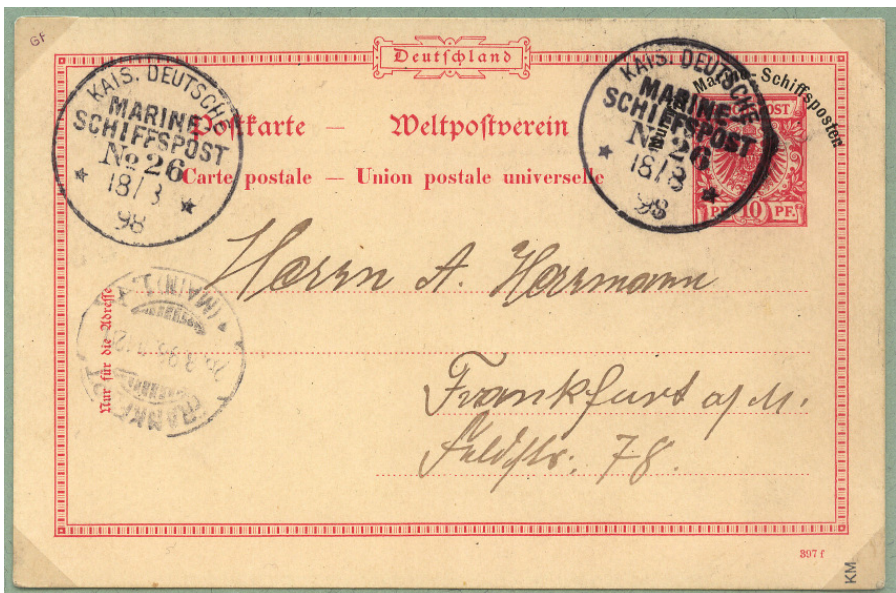 GF
Deutschland
KAIS. DEUTSCHE
MARINE-
SCHIFFSPOST
No 26
18/3
98
KAIS. DEUTSCHE
MARINE-
SCHIFFSPOST
No 26
18/3
98
Marine-Schiffsposten
Postkarte — Weltpostverein
Carte postale — Union postale universelle
PF. 10 PF.
Herrn A. Herrmann
Nur für die Adresse
Frankfurt a/M.
Feldstr. 78.
FRANKFURT (MAIN) 1
397 f
KM